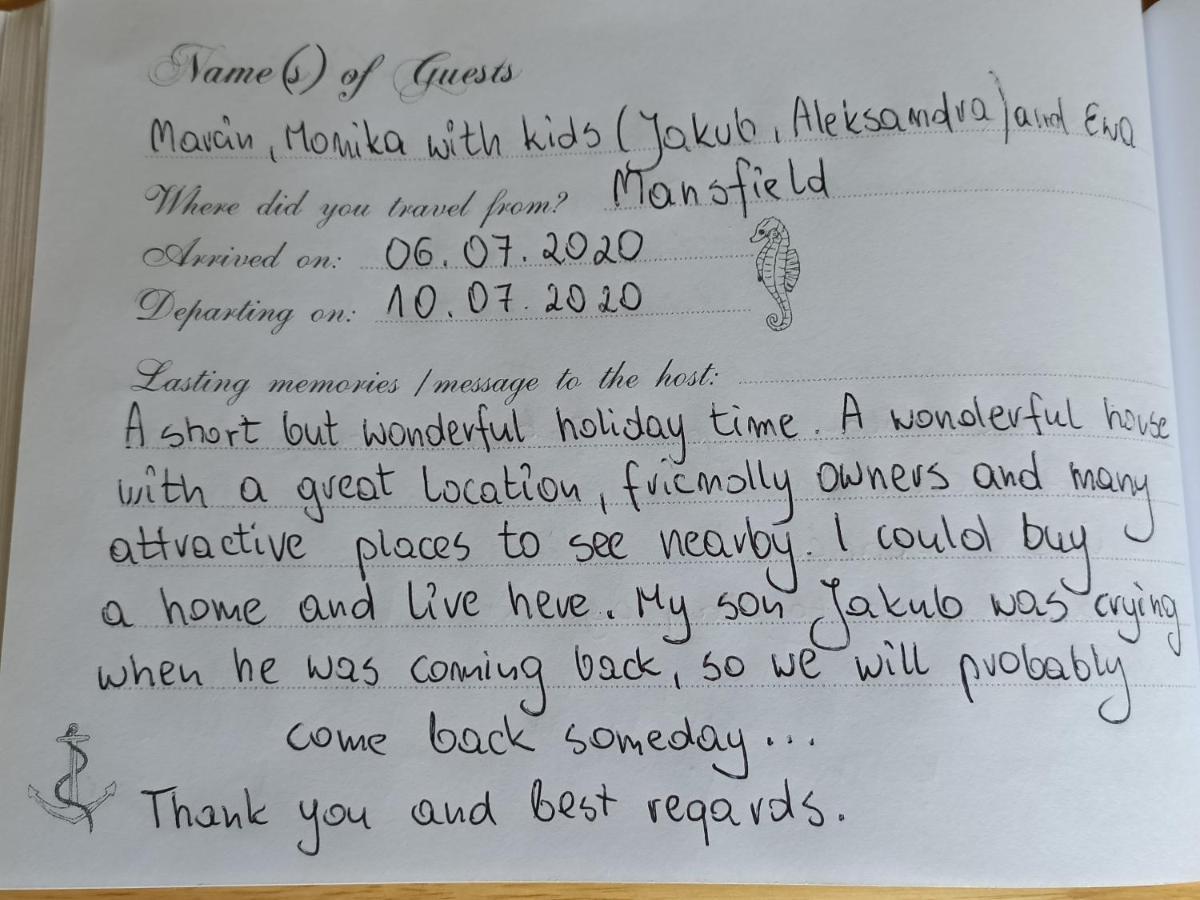 Name(s) of Guests
Marcin, Monika with kids (Jakub, Aleksandra) and Ewa
Where did you travel from? Mansfield
Arrived on: 06.07.2020
Departing on: 10.07.2020
Lasting memories / message to the host:
A short but wonderful holiday time. A wonderful house
with a great location, friendly owners and many
attractive places to see nearby. I could buy
a home and live here. My son Jakub was crying
when he was coming back, so we will probably
come back someday...
Thank you and best regards.